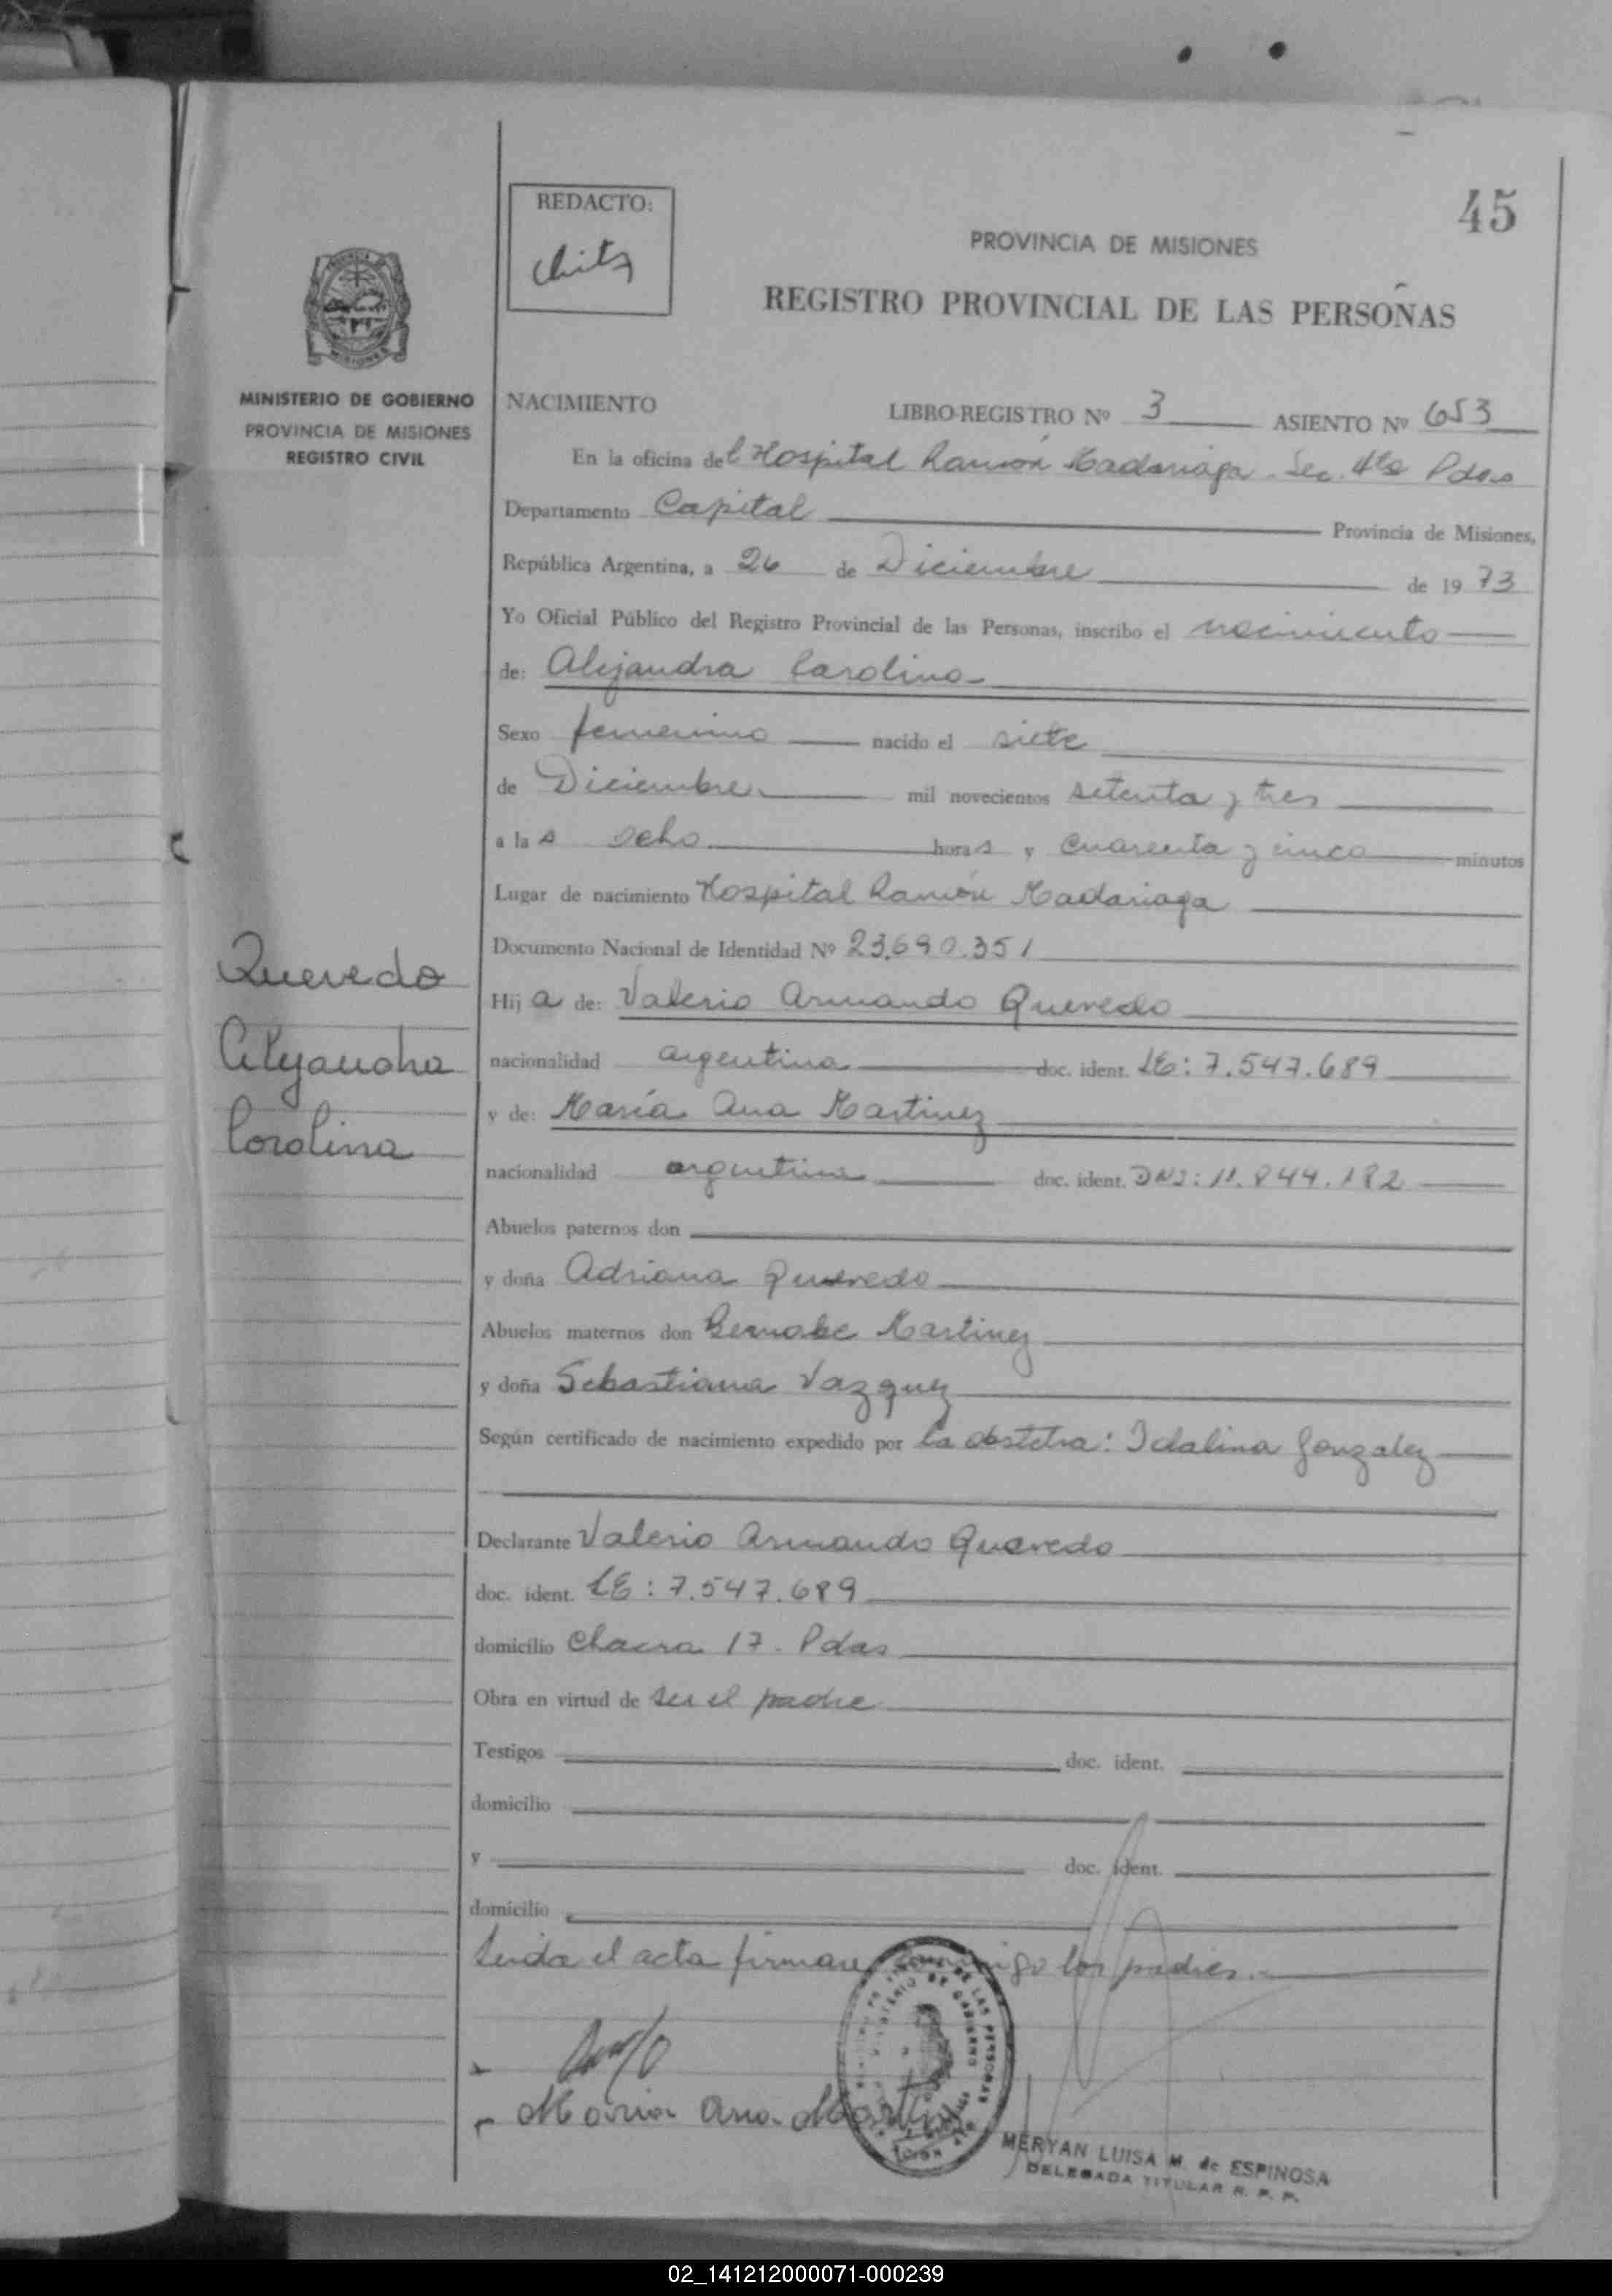 45
REDACTO:
Chita
PROVINCIA DE MISIONES
REGISTRO PROVINCIAL DE LAS PERSONAS
MINISTERIO DE GOBIERNO
PROVINCIA DE MISIONES
REGISTRO CIVIL
NACIMIENTO LIBRO-REGISTRO Nº 3 ASIENTO Nº 653
En la oficina del Hospital Ramón Madariaga - Sec. 4ta Pdas
Departamento Capital Provincia de Misiones,
República Argentina, a 26 de Diciembre de 1973
Yo Oficial Público del Registro Provincial de las Personas, inscribo el nacimiento
de: Alejandra Carolina
Sexo femenino nacido el siete
de Diciembre mil novecientos setenta y tres
a las ocho horas y cuarenta y cinco minutos
Lugar de nacimiento Hospital Ramón Madariaga
Documento Nacional de Identidad Nº 23.690.351
Quevedo
Alejandra
Carolina
Hija de: Valerio Armando Quevedo
nacionalidad argentina doc. ident. LE: 7.547.689
y de: María Ana Martinez
nacionalidad argentina doc. ident. DNI: 11.844.182
Abuelos paternos don
y doña Adriana Quevedo
Abuelos maternos don Bernabe Martinez
y doña Sebastiana Vazquez
Según certificado de nacimiento expedido por la obstetra: Idalina Gonzalez
Declarante Valerio Armando Quevedo
doc. ident. LE: 7.547.689
domicilio Chacra 17 - Pdas
Obra en virtud de ser el padre
Testigos doc. ident.
domicilio
y doc. ident.
domicilio
Leida el acta firman conmigo los padres.-
Maria Ana Martinez
MERYAN LUISA M. de ESPINOSA
DELEGADA TITULAR R. P. P.
02_141212000071-000239